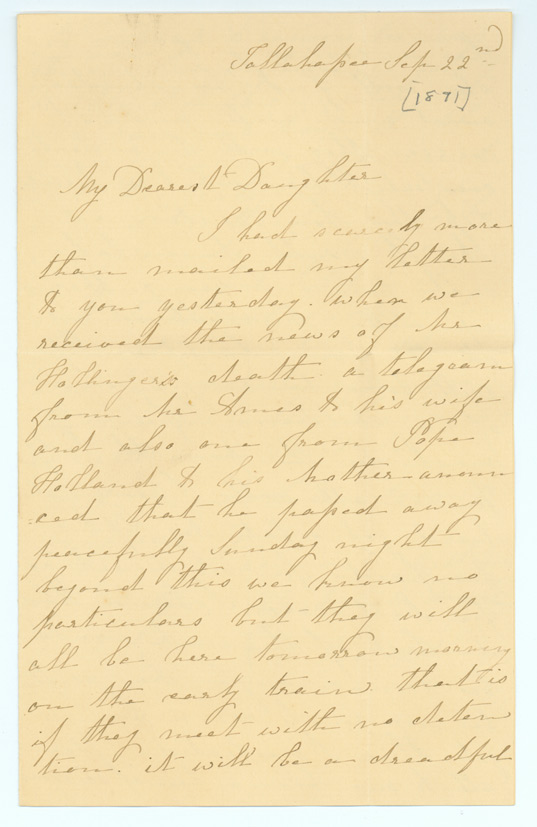 Tallahassee Sep 22nd
[1891]
My Dearest Daughter
I had scarcely more
than mailed my letter
to you yesterday. when we
received the news of Mr
Hollinger's death. a telegram
from Mr Ames to his wife
and also one from Pope
Holland to his Mother announ
ced that he passed away
peacefully Sunday night
beyond this we know no
particulars but they will
all be here tomorrow morning
on the early train. that is
if they meet with no deten
tion. it will be a dreadful